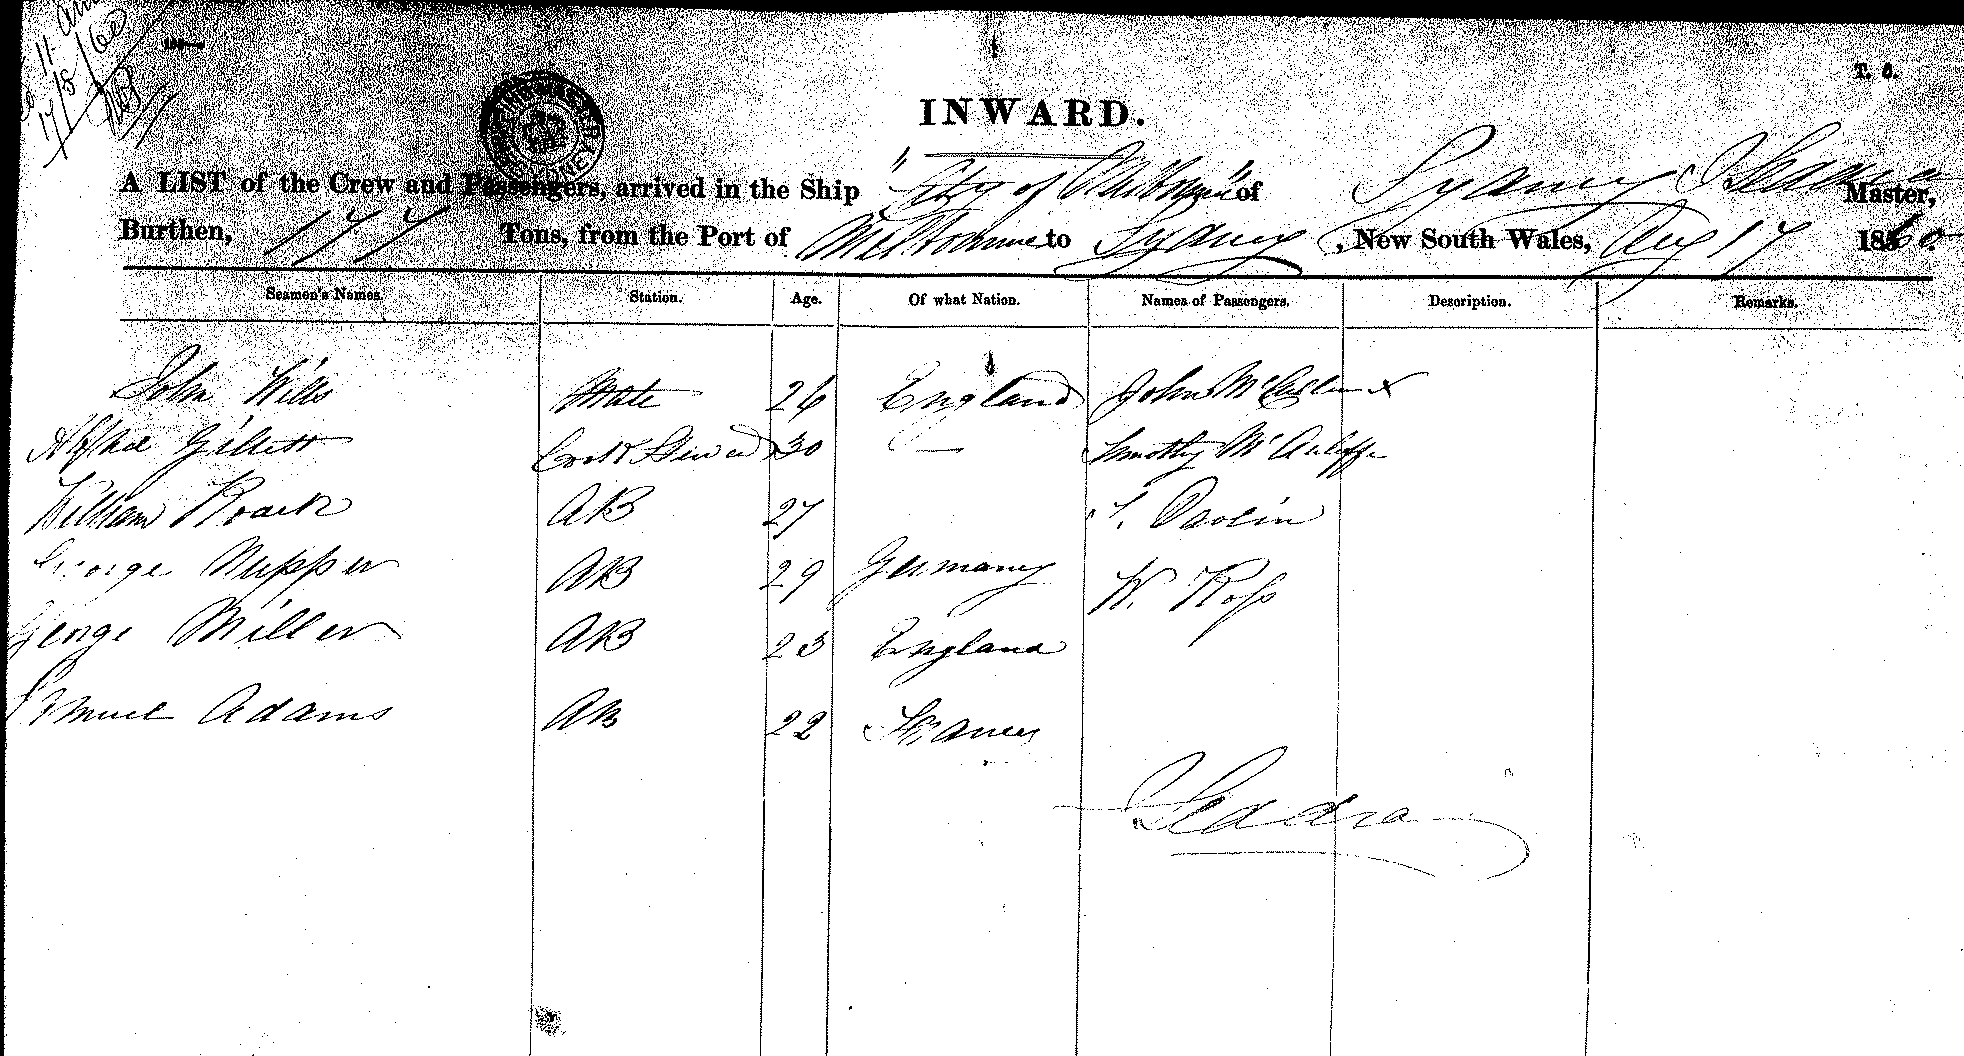 17/8/60
T. 5.
INWARD.
A LIST of the Crew and Passengers, arrived in the Ship "City of Melbourne" of Sydney Master,
Burthen, 177 Tons, from the Port of Melbourne to Sydney, New South Wales, Aug 17 1860
Seamen's Names. Station. Age. Of what Nation. Names of Passengers. Description. Remarks.
John Wills Mate 26 England John
Alfred Gillett Cook & Steward 30 — Timothy McAuliffe
William AB 27 T. Devlin
George Nupper AB 29 Germany W. Ross
George Miller AB 23 England
Samuel Adams AB 22